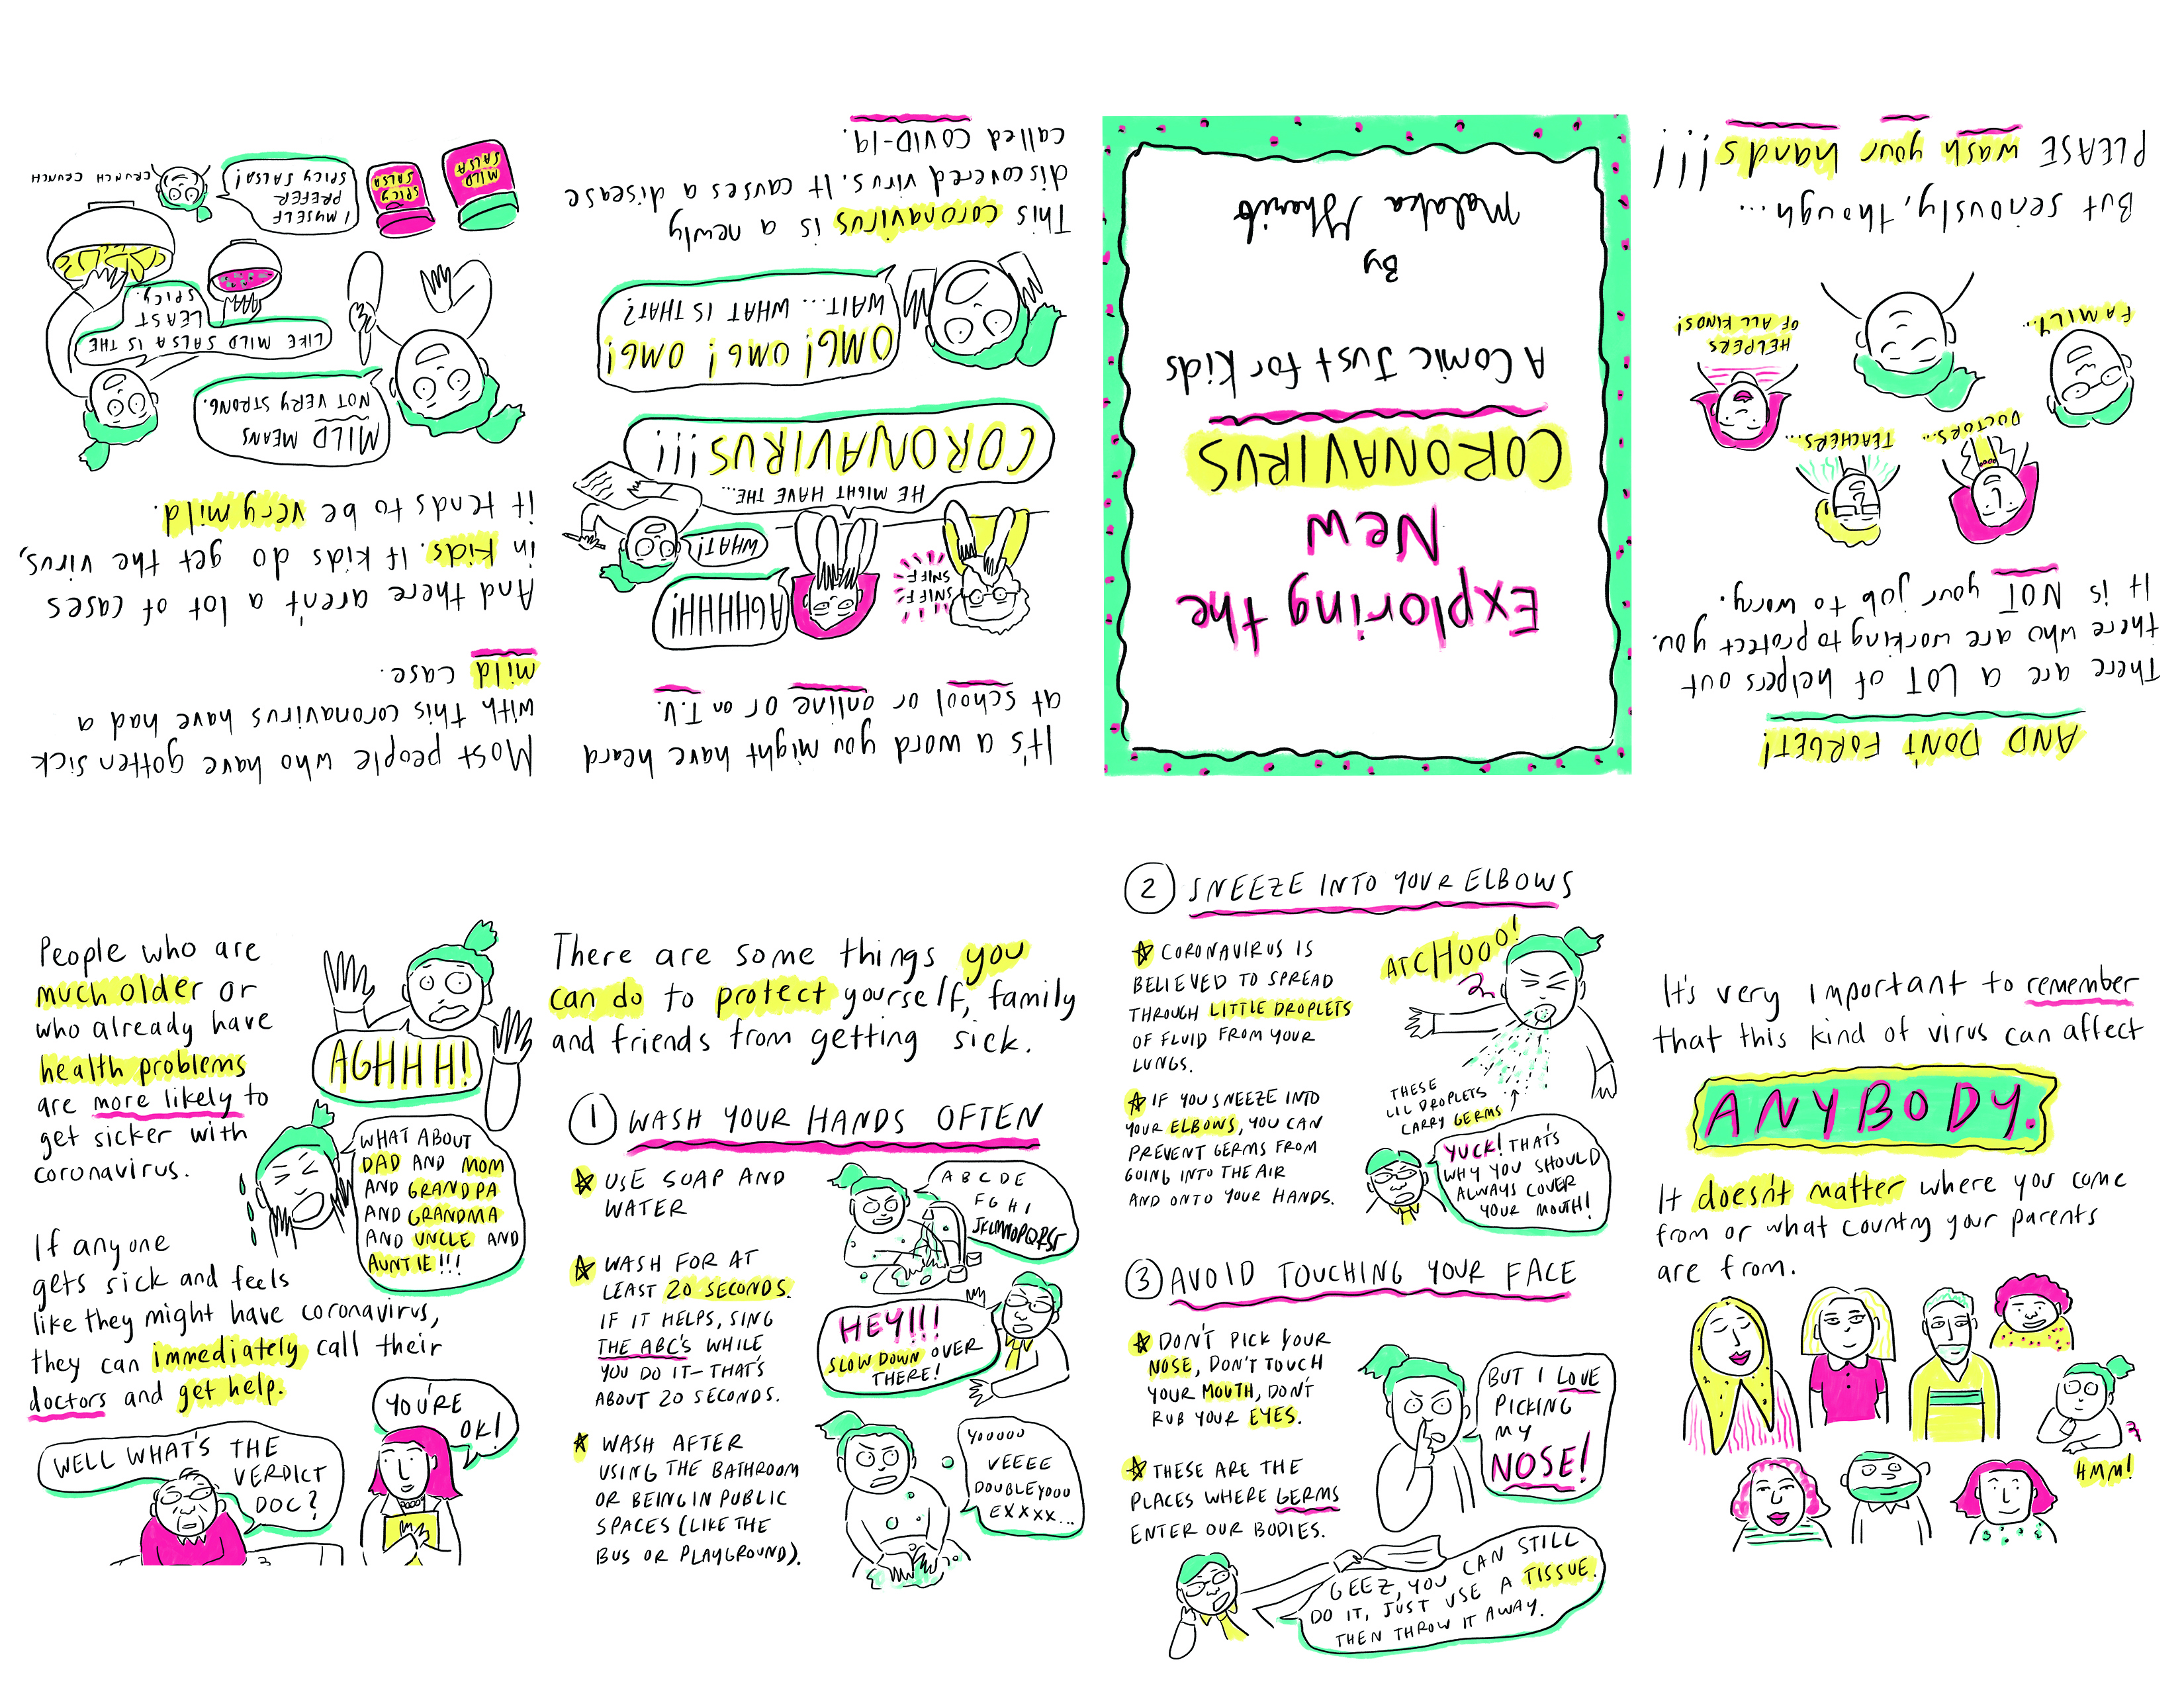 Exploring the
New
CORONAVIRUS
A Comic Just for Kids
By
Malaka Gharib
It's a word you might have heard
at school or online or on T.V.
SNIFF
SNIFF
AGHHHH!
WHAT!
HE MIGHT HAVE THE...
CORONAVIRUS!!!
OMG! OMG! OMG!
WAIT... WHAT IS THAT?
This coronavirus is a newly
discovered virus. It causes a disease
called COVID-19.
Most people who have gotten sick
with this coronavirus have had a
mild case.
And there aren't a lot of cases
in kids. If kids do get the virus,
it tends to be very mild.
MILD MEANS
NOT VERY STRONG.
LIKE MILD SALSA IS THE
LEAST
SPICY.
I MYSELF
PREFER
SPICY SALSA!
CRUNCH CRUNCH
SPICY
SALSA
MILD
SALSA
People who are
much older or
who already have
health problems
are more likely to
get sicker with
coronavirus.
AGHHH!
WHAT ABOUT
DAD AND MOM
AND GRANDPA
AND GRANDMA
AND UNCLE AND
AUNTIE!!!
If anyone
gets sick and feels
like they might have coronavirus,
they can immediately call their
doctors and get help.
WELL WHAT'S THE
VERDICT
DOC?
YOU'RE
OK!
There are some things you
can do to protect yourself, family
and friends from getting sick.
1 WASH YOUR HANDS OFTEN
USE SOAP AND
WATER
WASH FOR AT
LEAST 20 SECONDS.
IF IT HELPS, SING
THE ABC'S WHILE
YOU DO IT—THAT'S
ABOUT 20 SECONDS.
WASH AFTER
USING THE BATHROOM
OR BEING IN PUBLIC
SPACES (LIKE THE
BUS OR PLAYGROUND).
A B C D E
F G H I
JKLMNOPQRST
HEY!!!
SLOW DOWN OVER
THERE!
YOOOOO
VEEEE
DOUBLEYOOU
EXXXX...
2 SNEEZE INTO YOUR ELBOWS
CORONAVIRUS IS
BELIEVED TO SPREAD
THROUGH LITTLE DROPLETS
OF FLUID FROM YOUR
LUNGS.
IF YOU SNEEZE INTO
YOUR ELBOWS, YOU CAN
PREVENT GERMS FROM
GOING INTO THE AIR
AND ONTO YOUR HANDS.
ATCHOOO!
THESE
LIL DROPLETS
CARRY GERMS
YUCK! THAT'S
WHY YOU SHOULD
ALWAYS COVER
YOUR MOUTH!
3 AVOID TOUCHING YOUR FACE
DON'T PICK YOUR
NOSE, DON'T TOUCH
YOUR MOUTH, DON'T
RUB YOUR EYES.
THESE ARE THE
PLACES WHERE GERMS
ENTER OUR BODIES.
BUT I LOVE
PICKING
MY
NOSE!
GEEZ, YOU CAN STILL
DO IT, JUST USE A TISSUE.
THEN THROW IT AWAY.
It's very important to remember
that this kind of virus can affect
ANYBODY.
It doesn't matter where you come
from or what country your parents
are from.
HMM!
AND DON'T FORGET!
There are a LOT of helpers out
there who are working to protect you.
It is NOT your job to worry.
FAMILY...
DOCTORS...
TEACHERS...
HELPERS
OF ALL KINDS!
But seriously, though...
PLEASE wash your hands!!!